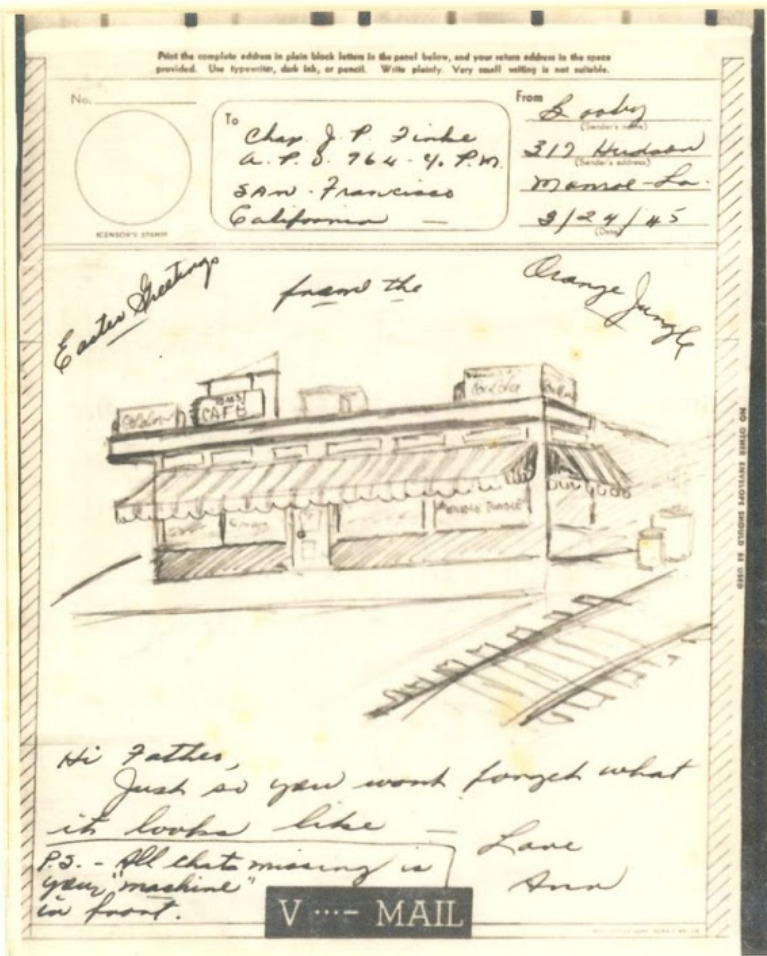 Print the complete address in plain block letters in the panel below, and your return address in the space
provided. Use typewriter, dark ink, or pencil. Write plainly. Very small writing is not suitable.
No.
(CENSOR'S STAMP)
To
Chap. J. P. Finke
A. P. O. 764 - % P.M.
SAN - Francisco
California —
From
(Sender's name)
317 Hudson
(Sender's address)
Monroe - La.
3/24/45
(Date)
Easter Greetings
from the
Orange Jungle
CAFE
Coca Cola
JUNGLE
NO OTHER ENVELOPE SHOULD BE USED
Hi Father,
Just so you wont forget what
it looks like —
Love
Ann
P.S. - All thats missing is
your "machine"
in front.
V ···– MAIL